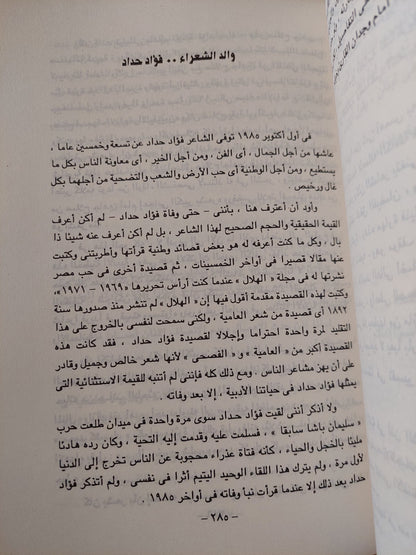 والد الشعراء .. فؤاد حداد
فى أول أكتوبر ١٩٨٥ توفى الشاعر فؤاد حداد عن تسعة وخمسين عاما ،
عاشها من أجل الجمال ، أى الفن ، ومن أجل الخير ، أى معاونة الناس بكل ما
يستطيع ، ومن أجل الوطنية أى حب الأرض والشعب والتضحية من أجلهما بكل
غال ورخيص .
وأود أن أعترف هنا ، بأننى – حتى وفاة فؤاد حداد – لم أكن أعرف
القيمة الحقيقية والحجم الصحيح لهذا الشاعر ، بل لم أكن أعرف عنه شيئا ذا
بال ، وكل ما كنت أعرفه له هو بعض قصائد وطنية قرأتها وأطربتنى وكتبت
عنها مقالا قصيرا فى أواخر الخمسينات ، ثم قصيدة أخرى فى حب مصر
نشرتها له فى مجلة « الهلال » عندما كنت أرأس تحريرها (١٩٦٩ – ١٩٧١)،
وكتبت لهذه القصيدة مقدمة أقول فيها إن « الهلال » لم تنشر منذ صدورها سنة
١٨٩٢ أى قصيدة من شعر العامية ، ولكنى سمحت لنفسى بالخروج على هذا
التقليد لمرة واحدة احتراما وإجلالا لقصيدة فؤاد حداد ، فقد كانت هذه
القصيدة أكبر من « العامية » و « الفصحى » لأنها شعر خالص وجميل وقادر
على أن يهز مشاعر الناس . ومع ذلك كله فإننى لم أنتبه للقيمة الاستثنائية التى
يمثلها فؤاد حداد فى حياتنا الأدبية ، إلا بعد وفاته .
ولا أذكر أننى لقيت فؤاد حداد سوى مرة واحدة فى ميدان طلعت حرب
« سليمان باشا سابقا » ، فسلمت عليه وقدمت إليه التحية ، وكان رده هادئا
مليئا بالخجل والحياء ، كأنه فتاة عذراء محجوبة عن الناس تخرج إلى الدنيا
لأول مرة ، ولم يترك هذا اللقاء الوحيد اليتيم أثرا فى نفسى ، ولم أتذكر فؤاد
حداد بعد ذلك إلا عندما قرأت نبأ وفاته فى أواخر ١٩٨٥ .
– ٢٨٥ –